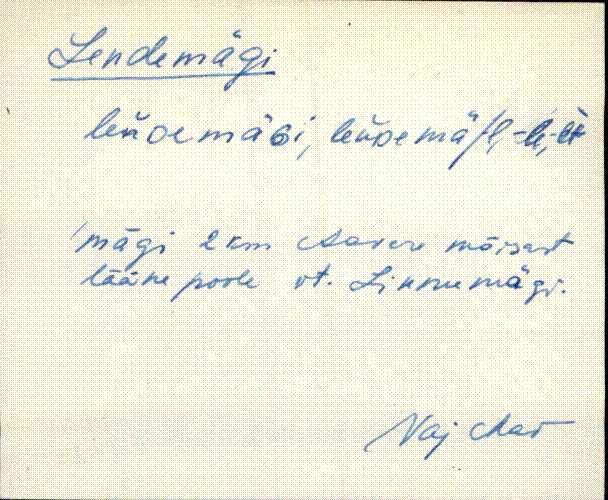 Lendemägi
leńdemäGi, leńdemä/l, -lt, -lt
mägi 2 km Aavere mõisast
lääne poole vt. Linnumägi.
Vaj Aav